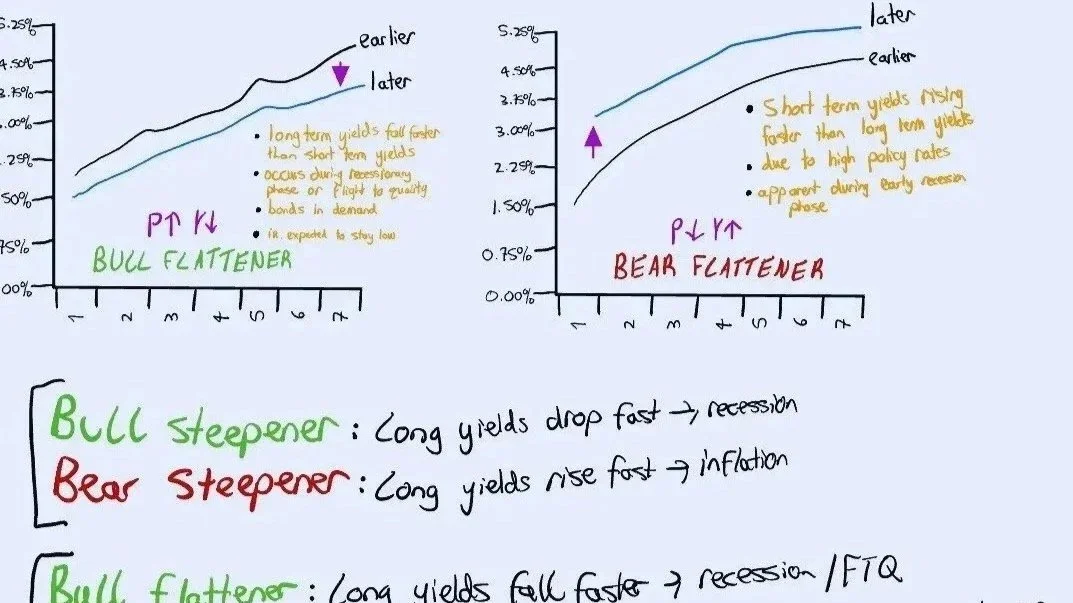 5.25%
4.50%
3.75%
3.00%
2.25%
1.50%
0.75%
0.00%
1 2 3 4 5 6 7
earlier
later
• long term yields fall faster
than short term yields
• occurs during recessionary
phase or flight to quality
• bonds in demand
• i.r. expected to stay low
P↑ Y↓
BULL FLATTENER
5.25%
4.50%
3.75%
3.00%
2.25%
1.50%
0.75%
0.00%
1 2 3 4 5 6 7
later
earlier
• Short term yields rising
faster than long term yields
• due to high policy rates
• apparent during early recession
phase
P↓ Y↑
BEAR FLATTENER
Bull steepener : Long yields drop fast → recession
Bear steepener : Long yields rise fast → inflation
Bull flattener : Long yields fall faster → recession / FTQ